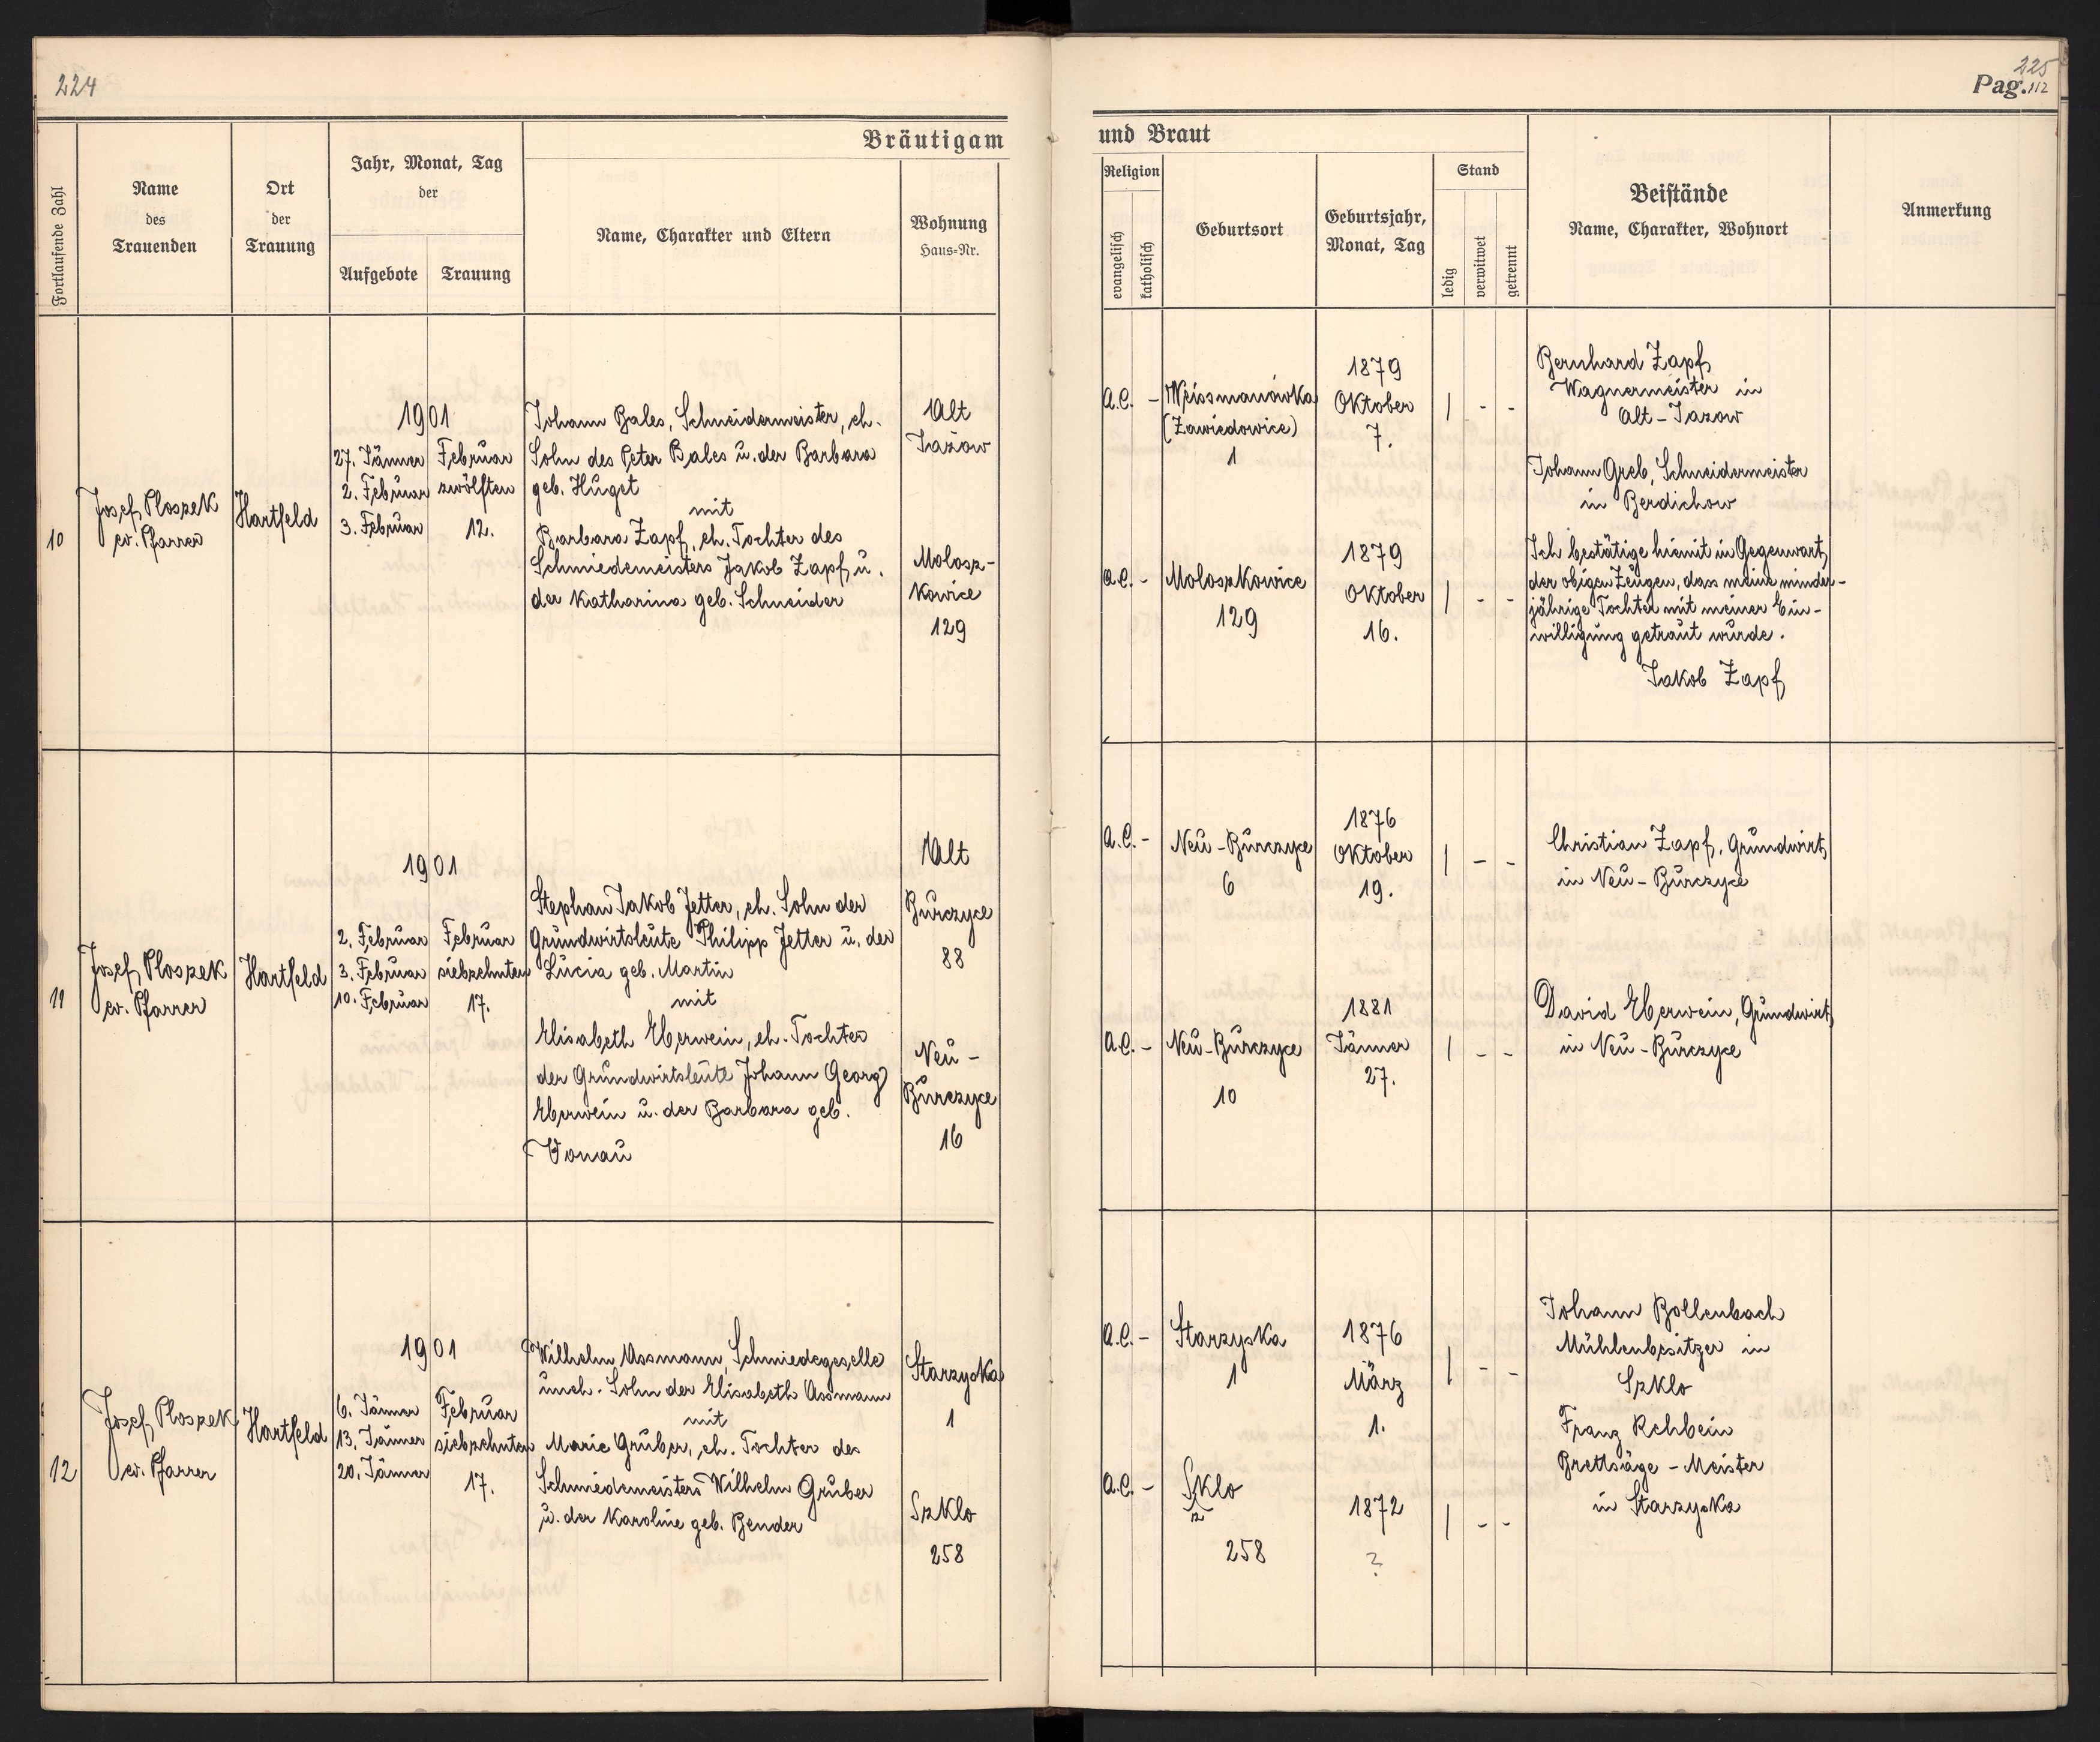 224
Bräutigam
Fortlaufende Zahl
Name
des
Trauenden
Ort
der
Trauung
Jahr, Monat, Tag
der
Aufgebote
Trauung
Name, Charakter und Eltern
Wohnung
Haus=Nr.
10
Josef Ploszek
ev. Pfarrer
Hartfeld
1901
27. Jänner
2. Februar
3. Februar
Februar
zwölften
12.
Johann Bales, Schneidermeister, eh.
Sohn des Peter Bales u. der Barbara
geb. Huget
mit
Barbara Zapf, eh. Tochter des
Schmiedemeisters Jakob Zapf u.
der Katharina geb. Schneider
Alt
Jazow
Molosz-
kowice
129
11
Josef Ploszek
ev. Pfarrer
Hartfeld
1901
2. Februar
3. Februar
10. Februar
Februar
siebzehnten
17.
Stephan Jakob Jetter, eh. Sohn der
Grundwirtsleute Philipp Jetter u. der
Lucia geb. Martin
mit
Elisabeth Eberwein, eh. Tochter
der Grundwirtsleute Johann Georg
Eberwein u. der Barbara geb.
Vonau
Alt
Burczyce
88
Neu-
Burczyce
16
12
Josef Ploszek
ev. Pfarrer
Hartfeld
1901
6. Jänner
13. Jänner
20. Jänner
Februar
siebzehnten
17.
Wilhelm Assmann, Schmiedegeselle
uneh. Sohn der Elisabeth Assmann
mit
Marie Gruber, eh. Tochter des
Schmiedemeisters Wilhelm Gruber
u. der Karoline geb. Bender
Starzyska
1
Szklo
258
225
Pag. 112
und Braut
Religion
evangelisch
katholisch
Geburtsort
Geburtsjahr,
Monat, Tag
Stand
ledig
verwitwet
getrennt
Beistände
Name, Charakter, Wohnort
Anmerkung
A.C. -
Weissmanówka
(Zawiedowice)
1
1879
Oktober
7.
| - -
Bernhard Zapf
Wagnermeister in
Alt-Jazow
Johann Greb, Schneidermeister
in Berdichow
A.C. -
Moloszkowice
129
1879
Oktober
16.
| - -
Ich bestätige hiemit in Gegenwart
der obigen Zeugen, dass meine minder-
jährige Tochter mit meiner Ein-
willigung getraut wurde.
Jakob Zapf
A.C. -
Neu-Burczyce
6
1876
Oktober
19.
| - -
Christian Zapf, Grundwirt
in Neu-Burczyce
A.C. -
Neu-Burczyce
10
1881
Jänner
27.
| - -
David Eberwein, Grundwirt
in Neu-Burczyce
A.C. -
Starzyska
1
1876
März
1.
| - -
Johann Bollenbach
Mühlenbesitzer in
Szklo
Franz Rehbein
Brettsäge-Meister
in Starzyska
A.C. -
Sklo
z
258
1872
?
| - -